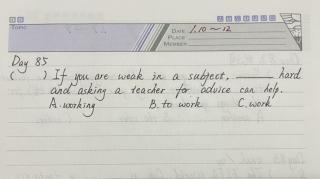 TOPIC
DATE 1.10~12
PLACE
MEMBER
Day 85
( ) If you are weak in a subject, ____ hard
and asking a teacher for advice can help.
A. working B. to work C. work